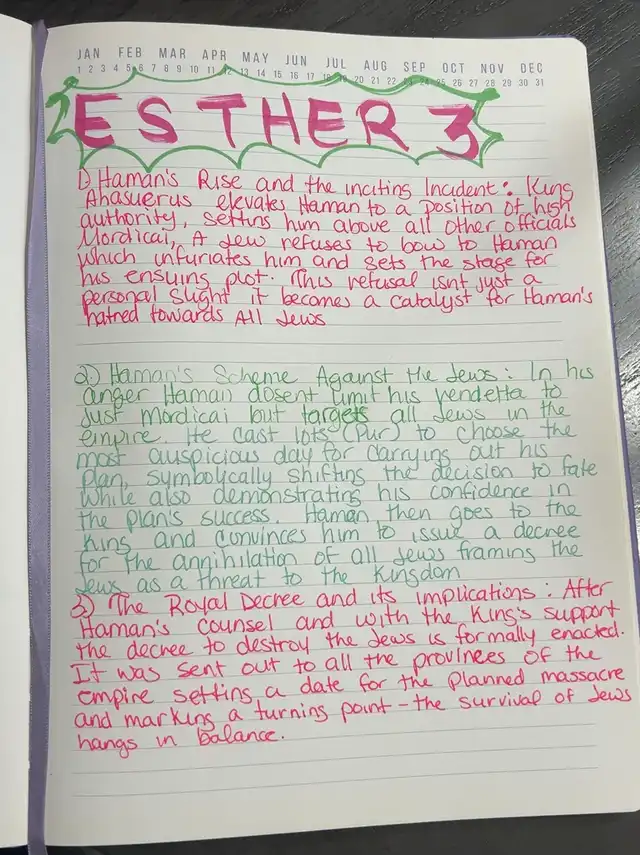 JAN FEB MAR APR MAY JUN JUL AUG SEP OCT NOV DEC
1 2 3 4 5 6 7 8 9 10 11 12 13 14 15 16 17 18 19 20 21 22 23 24 25 26 27 28 29 30 31
ESTHER 3
1) Haman's Rise and the inciting Incident: King
Ahasuerus elevates Haman to a position of high
authority, setting him above all other officials
Mordicai, A Jew refuses to bow to Haman
which infuriates him and sets the stage for
his ensuing plot. This refusal isnt just a
personal slight it becomes a catalyst for Haman's
hatred towards All Jews
2) Haman's Scheme Against the Jews: In his
anger Haman dosent limit his vendetta to
Just Mordicai but targets all Jews in the
empire. He cast lots (Pur) to choose the
most auspicious day for carrying out his
plan, symbolically shifting the decision to fate
while also demonstrating his confidence in
the plan's success. Haman then goes to the
King and convinces him to issue a decree
for the annihilation of all Jews framing the
Jews as a threat to the Kingdom
3) The Royal Decree and its implications: After
Haman's counsel and with the King's support
the decree to destroy the Jews is formally enacted.
It was sent out to all the provinces of the
empire setting a date for the planned massacre
and marking a turning point - the survival of Jews
hangs in balance.